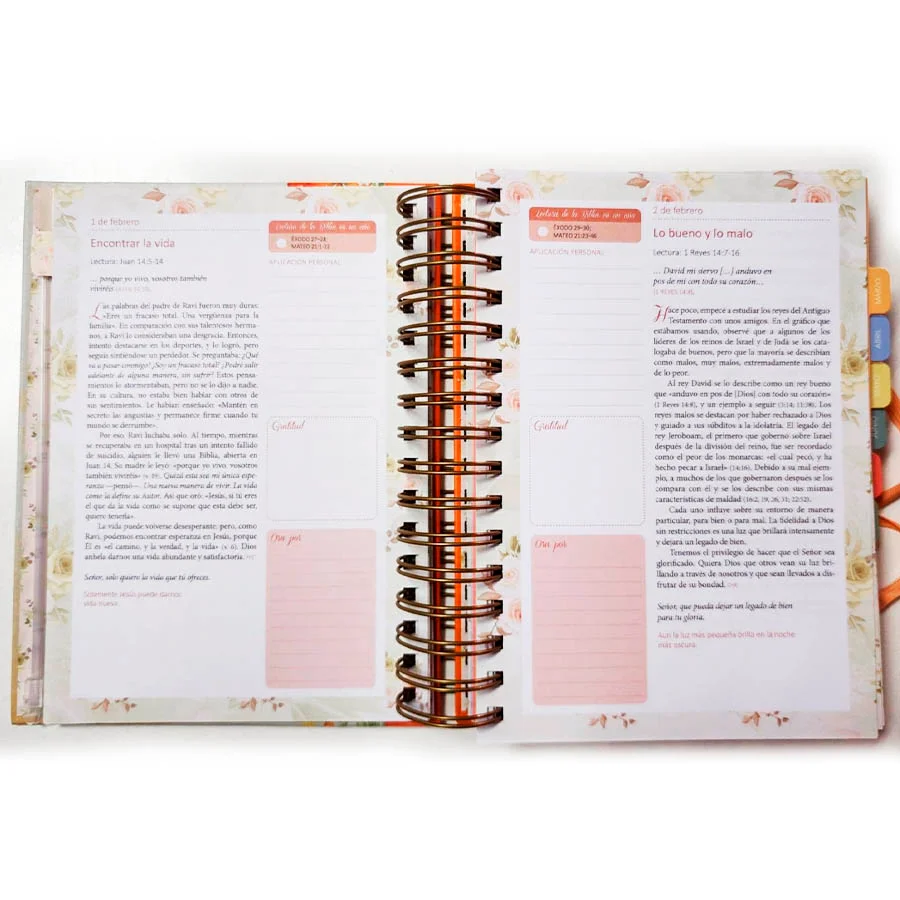 1 de febrero
Encontrar la vida
Lectura: Juan 14:5-14
… porque yo vivo, vosotros también
viviréis
Las palabras del padre de Ravi fueron muy duras:
«Eres un fracaso total. Una vergüenza para la
familia». En comparación con sus talentosos herma-
nos, a Ravi lo consideraban una desgracia. Entonces,
intentó destacarse en los deportes, y lo logró, pero
seguía sintiéndose un perdedor. Se preguntaba: ¿Qué
va a pasar conmigo? ¿Soy un fracaso total? ¿Podré salir
adelante de alguna manera, sin sufrir? Estos pensa-
mientos lo atormentaban, pero no se lo dijo a nadie.
En su cultura, no estaba bien hablar con otros de
sus sentimientos. Le habían enseñado: «Mantén en
secreto las angustias y permanece firme cuando tu
mundo se derrumbe».
Por eso, Ravi luchaba solo. Al tiempo, mientras
se recuperaba en un hospital tras un intento fallido
de suicidio, alguien le llevó una Biblia, abierta en
Juan 14. Su madre le leyó: «porque yo vivo, vosotros
también viviréis» (v. 19). Quizá esta sea mi única espe-
ranza —pensó—. Una nueva manera de vivir. La vida
como la define su Autor. Así que oró: «Jesús, si tú eres
el que da la vida como se supone que esta debe ser,
quiero tenerla».
La vida puede volverse desesperante; pero, como
Ravi, podemos encontrar esperanza en Jesús, porque
Él es «el camino, y la verdad, y la vida» (v. 6). Dios
anhela darnos una vida abundante y satisfactoria.
Señor, solo quiero la vida que tú ofreces.
Solamente Jesús puede darnos
vida nueva.
Lectura de la Biblia en un año
ÉXODO 27–28;
MATEO 21:1-22
APLICACIÓN PERSONAL
Gratitud
Orar por
Lectura de la Biblia en un año
ÉXODO 29–30;
MATEO 21:23-46
APLICACIÓN PERSONAL
Gratitud
Orar por
2 de febrero
Lo bueno y lo malo
Lectura: 1 Reyes 14:7-16
… David mi siervo […] anduvo en
pos de mí con todo su corazón…
(1 REYES 14:8).
Hace poco, empecé a estudiar los reyes del Antiguo
Testamento con unos amigos. En el gráfico que
estábamos usando, observé que a algunos de los
líderes de los reinos de Israel y de Judá se los cata-
logaba de buenos, pero que la mayoría se describían
como malos, muy malos, extremadamente malos y
de lo peor.
Al rey David se lo describe como un rey bueno
que «anduvo en pos de [Dios] con todo su corazón»
(1 Reyes 14:8), y un ejemplo a seguir (3:14; 11:38). Los
reyes malos se destacan por haber rechazado a Dios
y guiado a sus súbditos a la idolatría. El legado del
rey Jeroboam, el primero que gobernó sobre Israel
después de la división del reino, fue ser recordado
como el peor de los monarcas: «el cual pecó, y ha
hecho pecar a Israel» (14:16). Debido a su mal ejem-
plo, a muchos de los que gobernaron después se los
compara con él y se los describe con sus mismas
características de maldad (16:2, 19, 26, 31; 22:52).
Cada uno influye sobre su entorno de manera
particular, para bien o para mal. La fidelidad a Dios
sin restricciones es una luz que brillará intensamente
y dejará un legado de bien.
Tenemos el privilegio de hacer que el Señor sea
glorificado. Quiera Dios que otros vean su luz bri-
llando a través de nosotros y que sean llevados a dis-
frutar de su bondad.
Señor, que pueda dejar un legado de bien
para tu gloria.
Aun la luz más pequeña brilla en la noche
más oscura.
MARZO
ABRIL